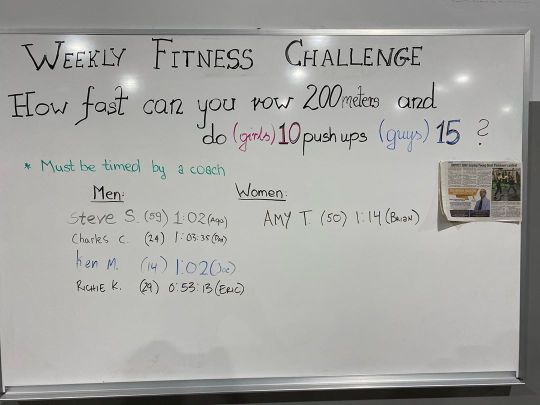 WEEKLY FITNESS CHALLENGE
How fast can you row 200 meters and
do (girls) 10 push ups (guys) 15 ?
* Must be timed by a coach
Men:
Steve S. (59) 1:02
Charles C. (24) 1:03:35
Ken M. (14) 1:02 (Joe)
RICHIE K. (29) 0:53:13 (ERIC)
Women:
AMY T. (50) 1:14 (BRIAN)